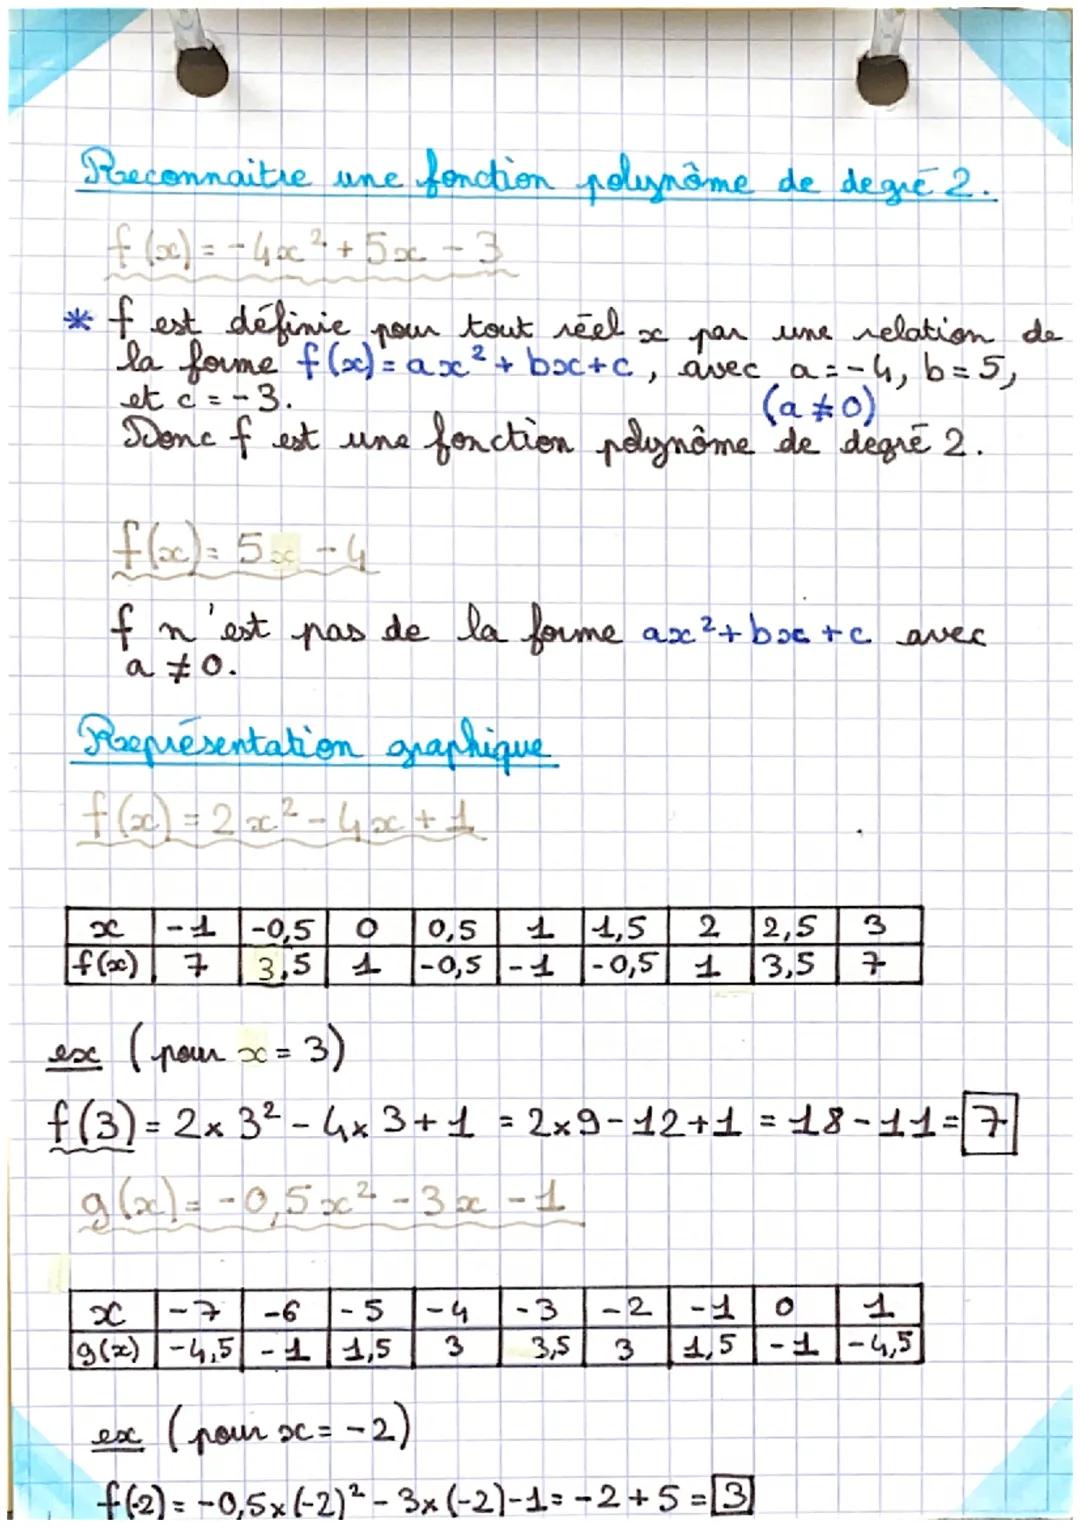 Reconnaitre une fonction polynôme de degré 2.
f(x) = -4x² + 5x - 3
* f est définie pour tout réel x par une relation de
la forme f(x) = ax² + bx + c, avec a = -4, b = 5,
et c = -3. (a ≠ 0)
Donc f est une fonction polynôme de degré 2.
f(x) = 5x - 4
f n'est pas de la forme ax² + bx + c avec
a ≠ 0.
Représentation graphique
f(x) = 2x² - 4x + 1
x -1 -0,5 0 0,5 1 1,5 2 2,5 3
f(x) 7 3,5 1 -0,5 -1 -0,5 1 3,5 7
ex (pour x = 3)
f(3) = 2 x 3² - 4 x 3 + 1 = 2 x 9 - 12 + 1 = 18 - 11 = 7
g(x) = -0,5x² - 3x - 1
x -7 -6 -5 -4 -3 -2 -1 0 1
g(x) -4,5 -1 1,5 3 3,5 3 1,5 -1 -4,5
ex (pour x = -2)
f(-2) = -0,5 x (-2)² - 3 x (-2) - 1 = -2 + 5 = 3